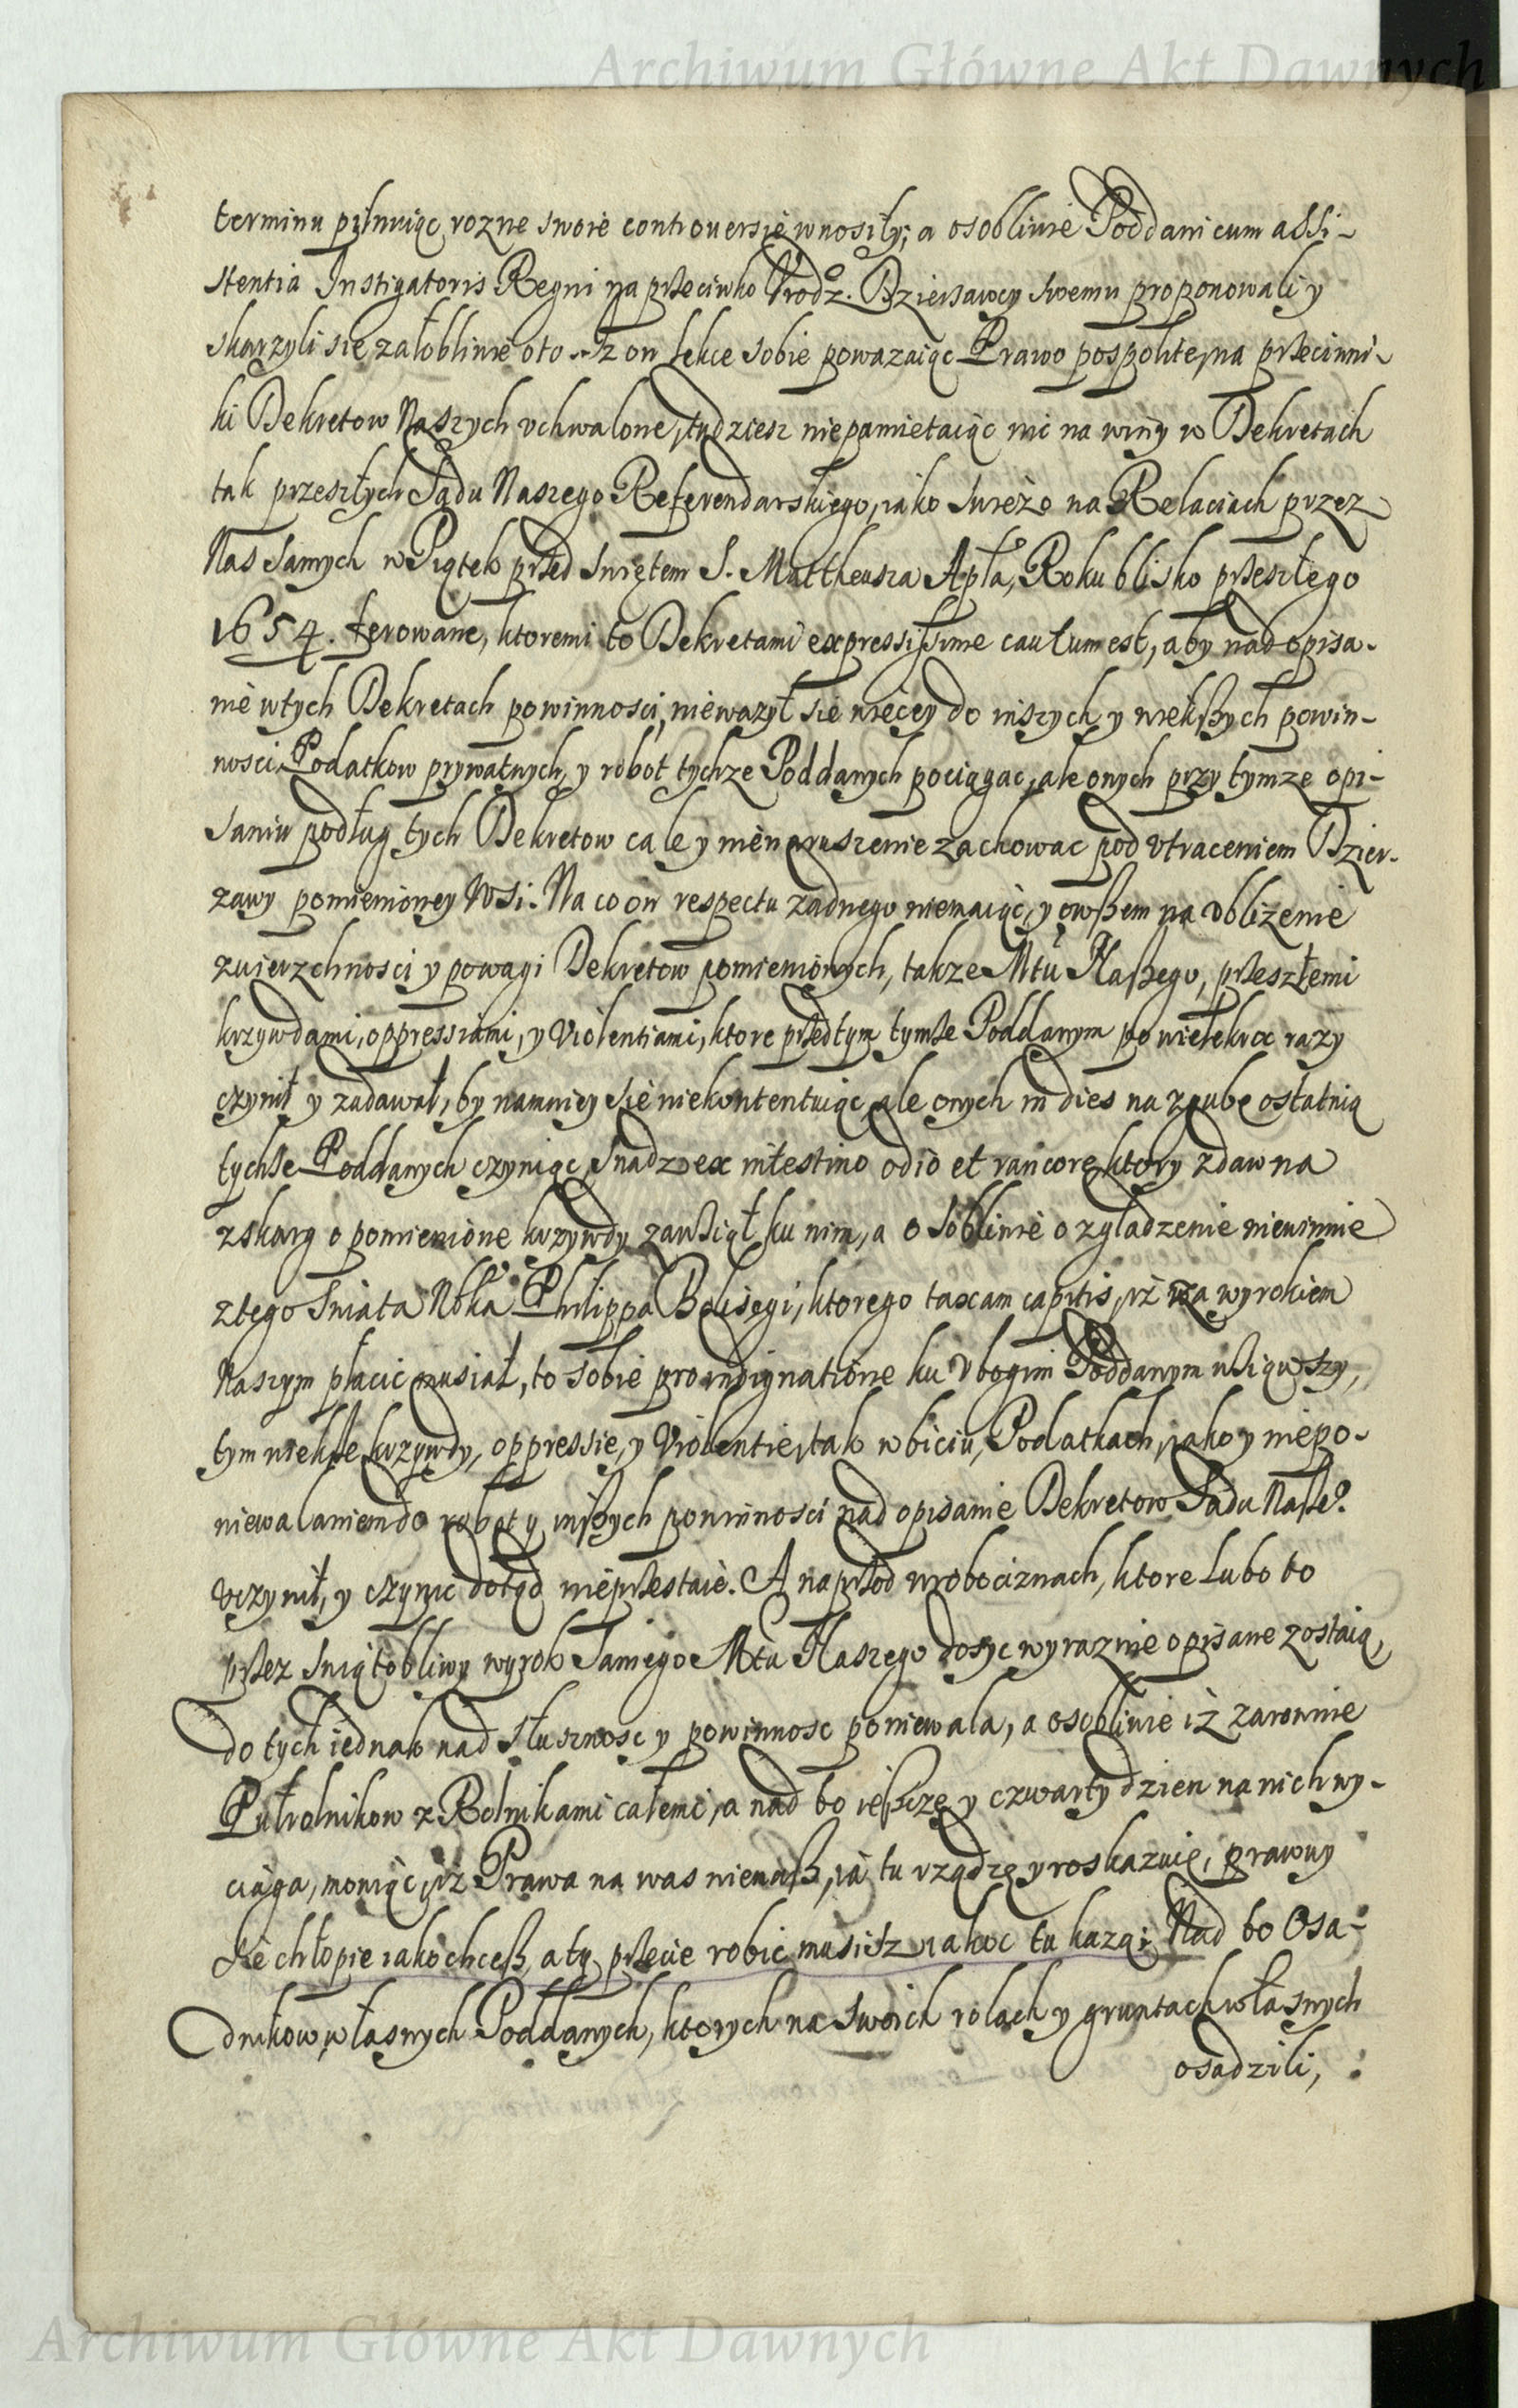 Archiwum Główne Akt Dawnych
terminu pilnuiąc rozne swoie controuersie wnosiły; a osobliwie Poddani cum assi-
stentia Instigatoris Regni na przeciwko Urodz. Dzierzawcy swemu proponowali y
skarzyli sie załoblimie oto iz on lekce sobie powazaiąc Prawo pospolite, na przeciwni-
ki Dekretow Naszych vchwalone, tudziesz niepamietaiąc nic na winy w Dekretach
tak przeszłych Sądu Naszego Referendarskiego, iako swiezo na Relaciach przez
Nas samych w Piątek przed Swiętem S. Mattheusza Apła, Roku blisko przeszłego
1654. ferowane, ktoremi to Dekretami expressissime cautum est, aby nad opisa-
nie wtych Dekretach powinnosci, niewazył sie więcey do inszych y większych powin-
nosci, Podatkow prywatnych, y robot tychze Poddanych pociągac, ale onych przy tymze opi-
saniu podług tych Dekretow cale y nienaruszenie zachowac pod vtraceniem Dzier-
zawy pomienioney Wsi. Na co on respectu zadnego niemaiąc, y owszem na vblizenie
zwierzchnosci y powagi Dekretow pomienionych, takze Mtu Naszego, przeszłemi
krzywdami, oppressiami, y Violentiami, ktore przedtym tymze Poddanym po wielekroc razy
czynił y zadawał, by namniey sie niekontentuiąc, ale onych in dies na zgubę ostatnią
tychze Poddanych czyniąc, snadz ex intestino odio et rancore, ktory zdawna
zskarg o pomienione krzywdy zawziął ku nim, a osobliwie o zgladzenie niewinnie
ztego swiata Nbka Philippa Bolisęgi, ktorego taxam capitis, iż za wyrokiem
Naszym płacic musiał, to sobie pro indignatione ku Vbogim Poddanym wziąwszy,
tym większe krzywdy, oppressie, y Violentie, tak w biciu, Podatkach, iako y niepo-
niewalaniem do robot y inszych powinnosci nad opisanie Dekretow Sądu Nasze°
vczynił, y czynic dotąd nieprzestaie. A naprzod w robociznach, ktore lubo to
przez swiątobliwy wyrok Samego Mtu Naszego dosyc wyraznie opisane zostaią,
do tych iednak nad słusznosc y powinnosc poniewala, a osobliwie iż zarownie
Pułrolnikow z Rolnikami całemi, a nad to ieszcze y czwarty dzien na nich wy-
ciąga, mowiąc, iż Prawa na was niemasz, ia tu rządzę y roskazuię, prawuy
sie chłopie iako chcesz, a ty przecie robic musisz iakoc tu kazą; Nad to Osa-
dnikow, własnych Poddanych, ktorych na swoich rolach y gruntach własnych
osadzili,
Archiwum Główne Akt Dawnych